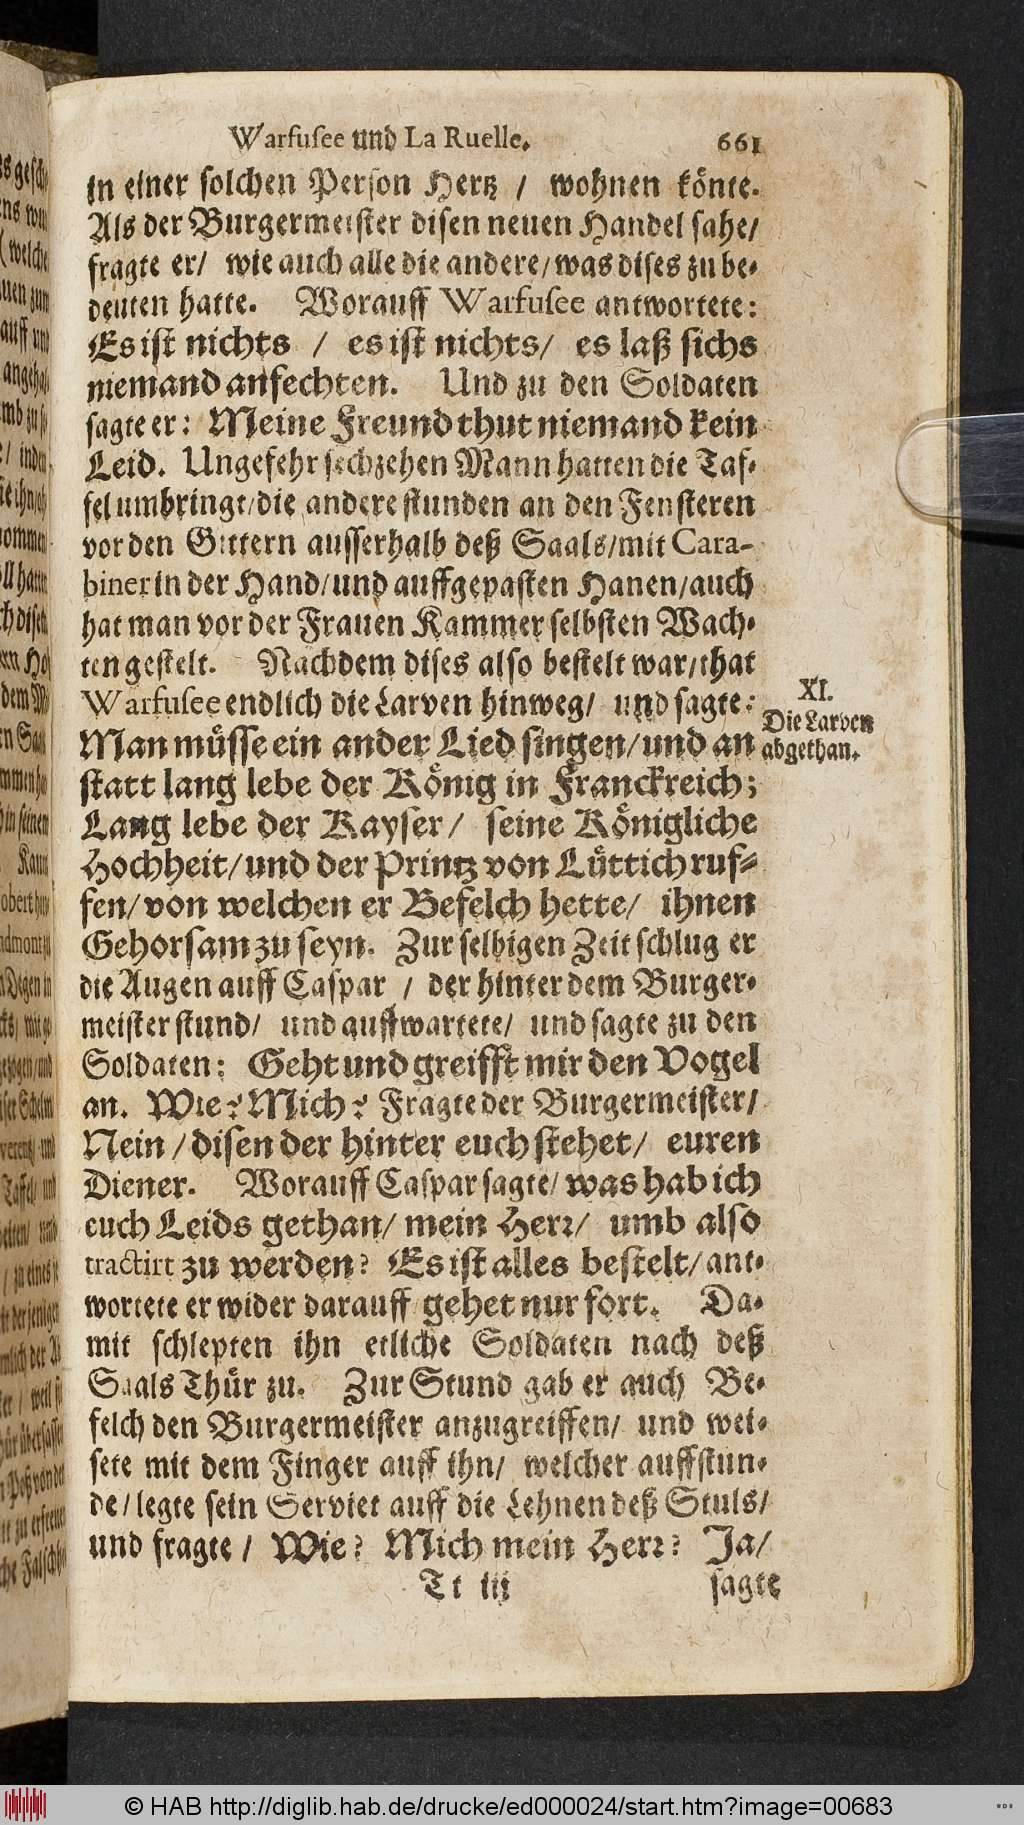 Warfusee und La Ruelle. 661
in einer solchen Person Hertz / wohnen könte.
Als der Burgermeister disen neuen Handel sahe/
fragte er/ wie auch alle die andere/was dises zu be-
deuten hatte. Worauff Warfusee antwortete:
Es ist nichts / es ist nichts/ es laß sichs
niemand anfechten. Und zu den Soldaten
sagte er: Meine Freund thut niemand kein
Leid. Ungefehr sechzehen Mann hatten die Taf-
fel umbringt/die andere stunden an den Fensteren
vor den Gittern ausserhalb deß Saals/mit Cara-
biner in der Hand/und auffgepasten Hanen/auch
hat man vor der Frauen Kammer selbsten Wach-
ten gestelt. Nachdem dises also bestelt war/that
Warfusee endlich die Larven hinweg/ und sagte:
XI.
Die Larven
abgethan.
Man müsse ein ander Lied singen/und an
statt lang lebe der König in Franckreich;
Lang lebe der Kayser/ seine Königliche
Hochheit/und der Printz von Lüttich ruf-
fen/von welchen er Befelch hette/ ihnen
Gehorsam zu seyn. Zur selbigen Zeit schlug er
die Augen auff Caspar / der hinter dem Burger-
meister stund/ und auffwartete/ und sagte zu den
Soldaten: Geht und greifft mir den Vogel
an. Wie? Mich? Fragte der Burgermeister/
Nein/disen der hinter euch stehet/ euren
Diener. Worauff Caspar sagte/was hab ich
euch Leids gethan/mein Herr/ umb also
tractirt zu werden? Es ist alles bestelt/ant-
wortete er wider darauff gehet nur fort. Da-
mit schlepten ihn etliche Soldaten nach deß
Saals Thür zu. Zur Stund gab er auch Be-
felch den Burgermeister anzugreiffen/ und wei-
sete mit dem Finger auff ihn/ welcher auffstun-
de/legte sein Serviet auff die Lehnen deß Stuls/
und fragte/ Wie? Mich mein Herr? Ja/
Tt iij sagte
© HAB http://diglib.hab.de/drucke/ed000024/start.htm?image=00683